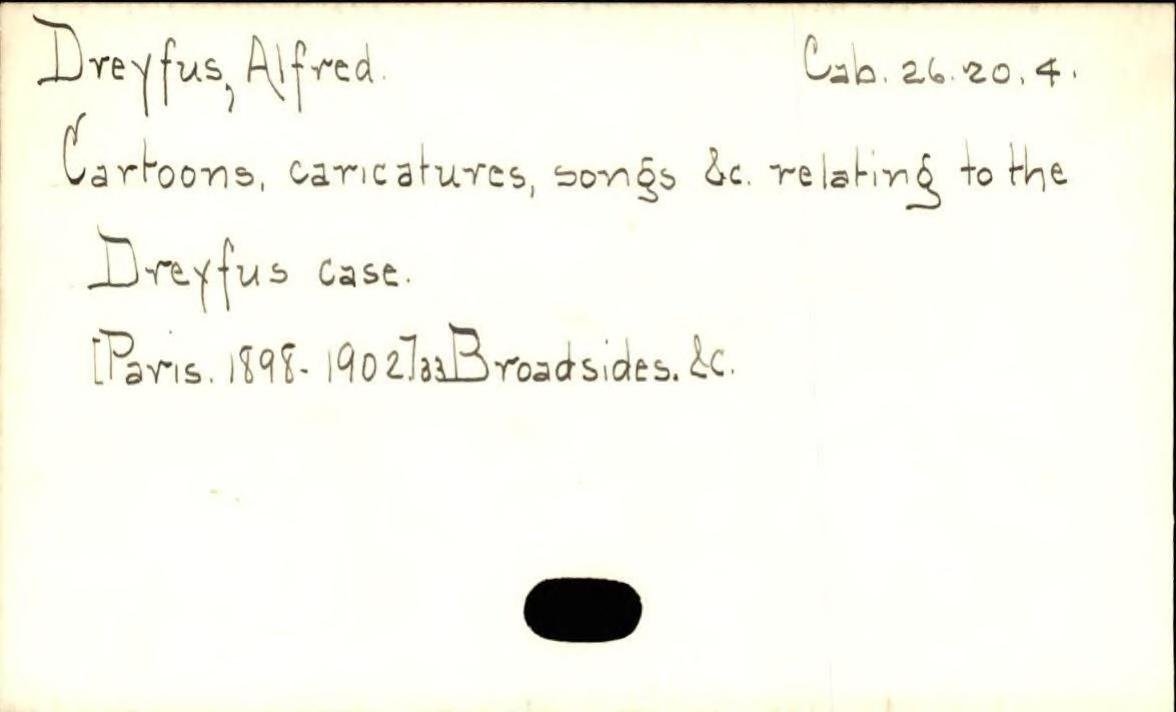 Dreyfus, Alfred. Cab. 26.20.4.
Cartoons, caricatures, songs &c. relating to the
Dreyfus case.
[Paris. 1898-1902] 33 Broadsides. &c.